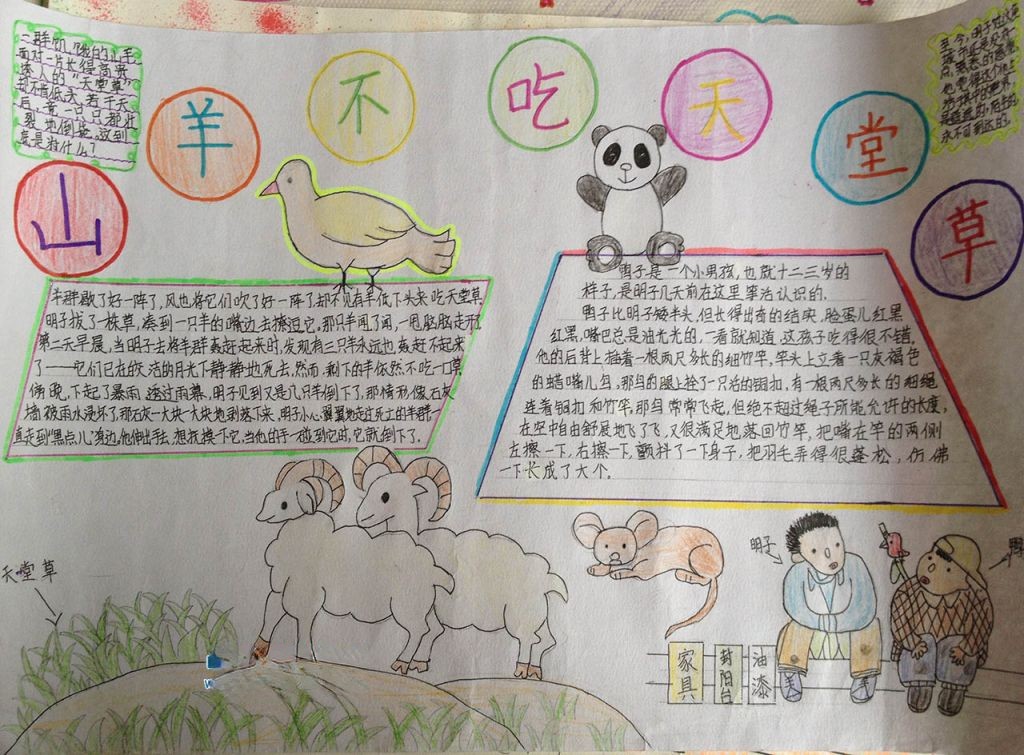 山羊不吃天堂草
二群饥饿的山羊
面对一片长得高贵
迷人的“天堂草”
却不肯低头,若干天
后,竟一只只都壮
烈地倒毙。这到
底是为什么?
永不可到达的。
羊群歇了好一阵了,风也将它们吹了好一阵了,却不见有羊低下头来吃天堂草
明子拔了一株草,凑到一只羊的嘴边去撩逗它。那只羊闻了闻,一甩脑脑走开了
第二天早晨,当明子去将羊群轰赶起来时,发现有三只羊永远也轰赶不起来
了——它们已在皎洁的月光下静静地死去,然而,剩下的羊依然不吃一口草
傍晚,下起了暴雨,透过雨幕,明子见到又是几只羊倒下了,那情形像石灰
墙被雨水浸坏了,那石灰一大块一大块地剥落下来,明子小心翼翼地走过屹立的羊群
直走到“黑点儿”身边,他伸出手去,想抚摸一下它,当他的手一碰到它时,它就倒下了.
鸭子是一个小男孩,也就十二三岁的
样子,是明子几天前在这里等活认识的.
鸭子比明子矮半头,但长得出奇的结实,脸蛋儿红黑
红黑,嘴巴总是油光光的,一看就知道,这孩子吃得很不错,
他的后背上插着一根两尺多长的细竹竿,竿头上立着一只灰褐色
的蜡嘴儿鸟,那鸟的腿上拴了一只活的铜扣,有一根两尺多长的细绳
连着铜扣和竹竿,那鸟常常飞起,但绝不超过绳子所能允许的长度,
在空中自由舒展地飞了飞,又很满足地落回竹竿,把嘴在竿的两侧
左擦一下,右擦一下,颤抖了一下身子,把羽毛弄得很蓬松,仿佛
一下长成了大个。
天堂草
明子
家具
封阳台
油漆